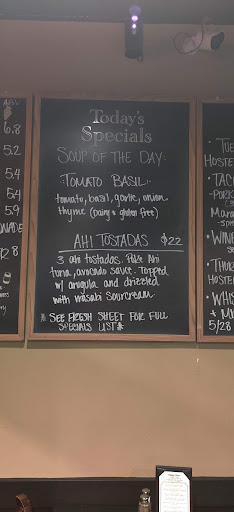 ABV
6.8
5.2
5.4
5.4
5.9
Today's
Specials
SOUP OF THE DAY
TOMATO BASIL
tomato, basil, garlic, onion
thyme (Dairy & gluten free)
AHI TOSTADAS $22
3 ahi tostadas. Poke Ahi
tuna, avocado sauce. Topped
w/ arugula and drizzled
with wasabi sourcream.
* SEE FRESH SHEET FOR FULL
SPECIALS LIST*
TUE
HOSTE
• TAC
PORK
Mar
• WIN
• THUR
HOSTE
• WHIS
+ M
5/28